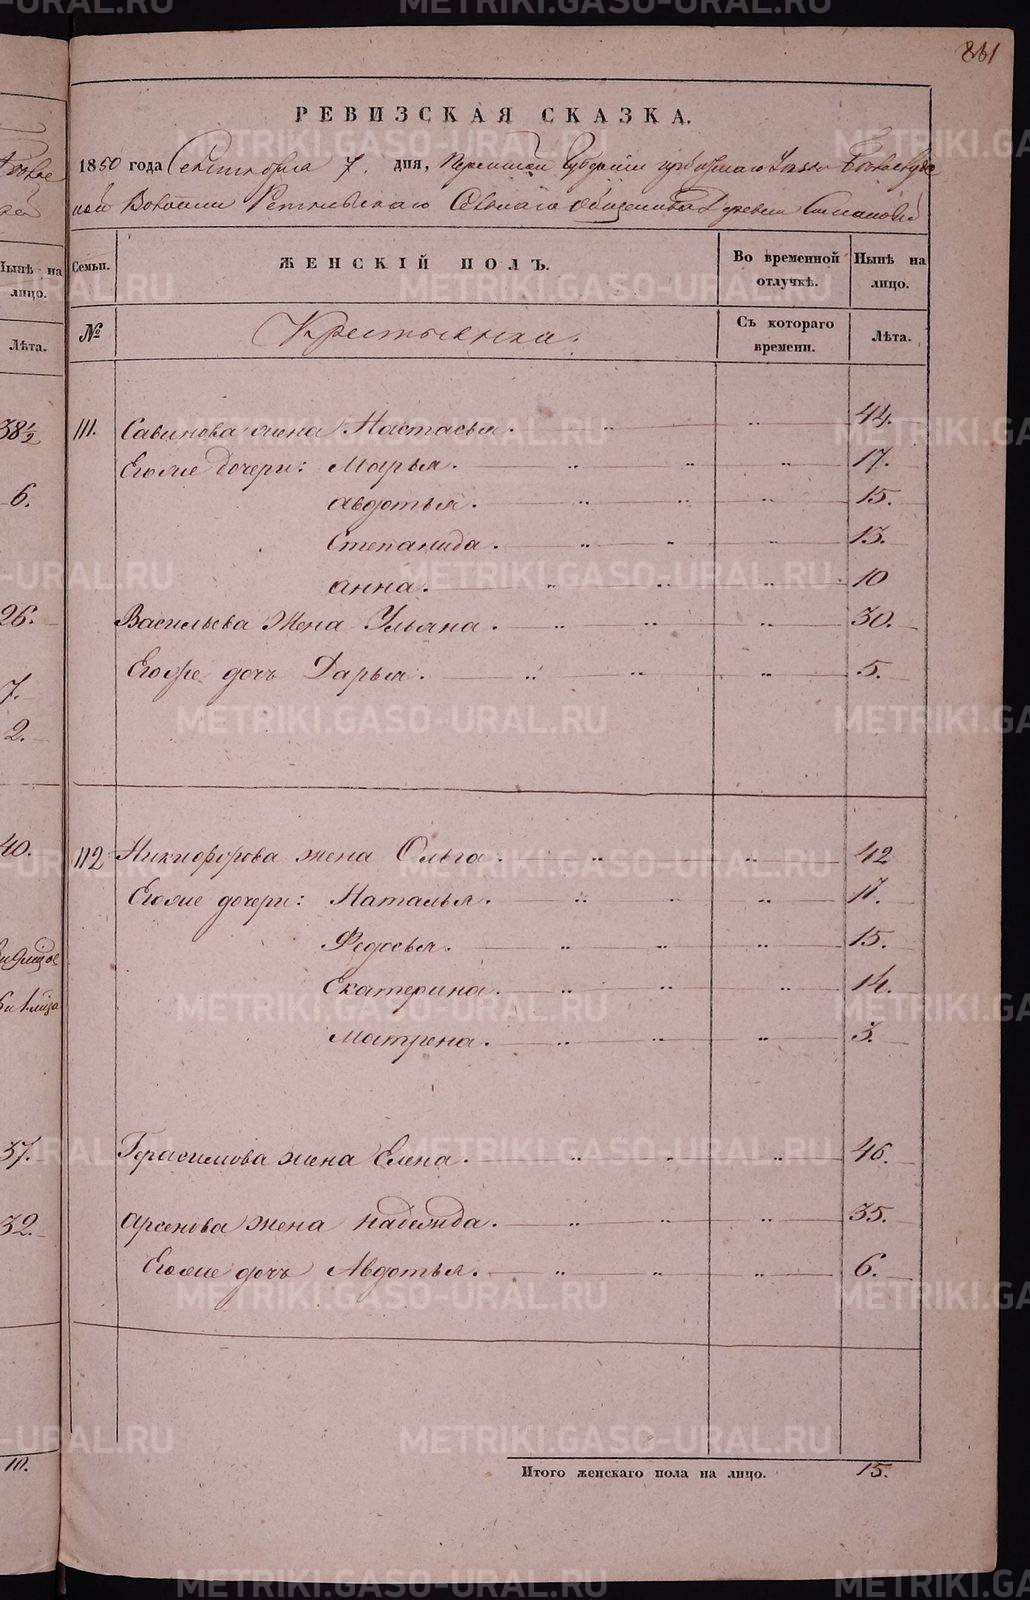 861
РЕВИЗСКАЯ СКАЗКА.
1850 года Сентября 7. дня, Пермской Губернии
ной Волости Сельского общества Деревни
Семьи. ЖЕНСКІЙ ПОЛЪ. Во временной отлучкѣ. Нынѣ на лицо.
№ Крестьянка. Съ котораго времени. Лѣта.
111. Савинова жена Настасья. 44.
Егоже дочери: Марья. 17.
Авдотья. 15.
Степанида. 13.
Анна. 10
Васильева Жена Ульяна. 30.
Егоже дочь Дарья. 5.
112 Никифорова жена Ольга. 42
Егоже дочери: Наталья. 17.
Федосья. 15.
Екатерина. 14.
Матрена. 3.
Герасимова жена Елена. 46.
Арсенова жена Надежда. 35.
Егоже дочь Авдотья. 6.
Итого женскаго пола на лицо. 15.
Нынѣ на лицо.
Лѣта.
38½
6.
26.
7.
2.
40.
37.
32.
10.
METRIKI.GASO-URAL.RU